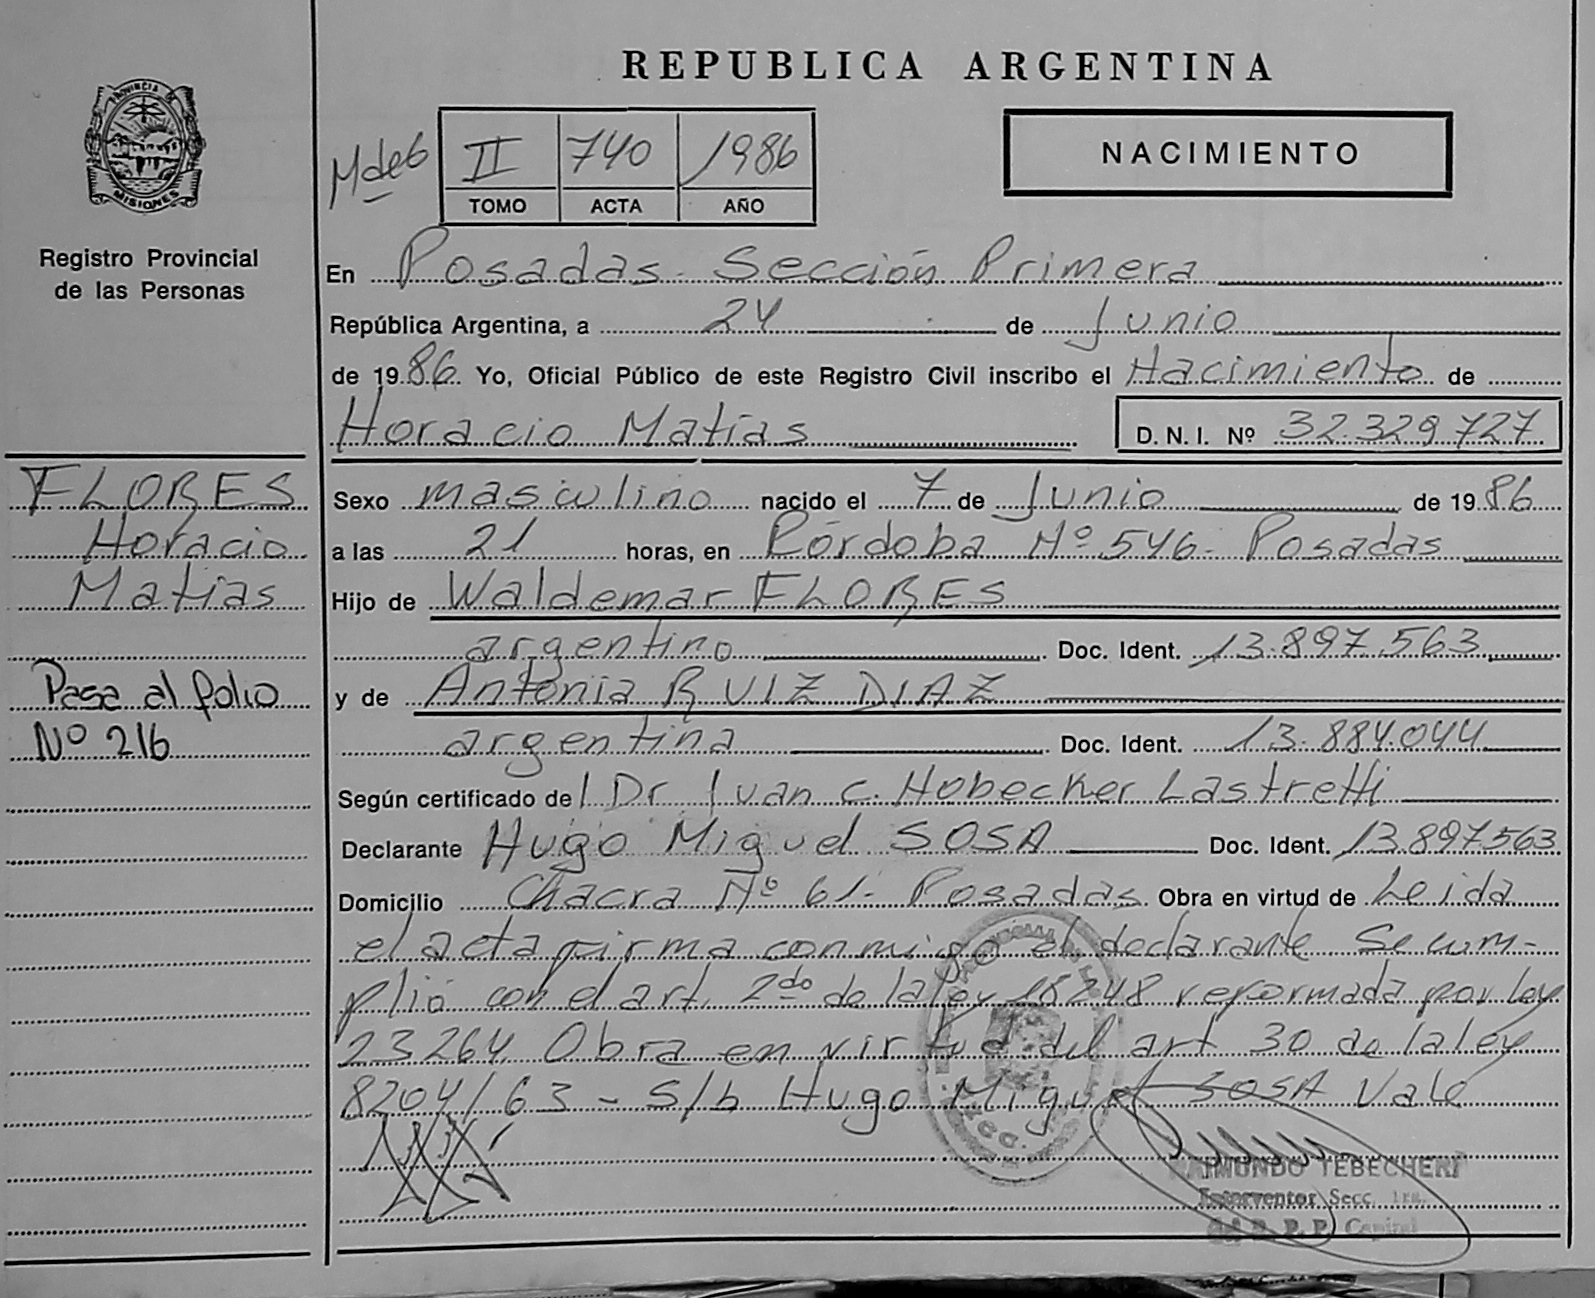 PROVINCIA DE
MISIONES
Registro Provincial
de las Personas
REPUBLICA ARGENTINA
Mde6
II 740 1986
TOMO ACTA AÑO
NACIMIENTO
En Posadas - Sección Primera
República Argentina, a 24 de Junio
de 1986 Yo, Oficial Público de este Registro Civil inscribo el Nacimiento de
Horacio Matías D. N. I. Nº 32.329.727
Sexo masculino nacido el 7 de Junio de 1986
a las 21 horas, en Córdoba Nº 546 - Posadas
Hijo de Waldemar FLORES
argentino Doc. Ident. 13.897.563
y de Antonia RUIZ DIAZ
argentina Doc. Ident. 13.884.044
Según certificado del Dr. Juan C. Hobecker Lastretti
Declarante Hugo Miguel SOSA Doc. Ident. 13.897563
Domicilio Chacra Nº 61 - Posadas Obra en virtud de Leida
el acta firma conmigo el declarante Se cum-
plió con el art. 2do de la ley 18248 reformada por ley
23264 Obra en virtud del art 30 de la ley
8204/63 - S/b Hugo Miguel SOSA Vale
RAIMUNDO TEBECHERI
Interventor Secc. 1ra.
R. P. P. Capital
FLORES
Horacio
Matías
Pasa al folio
Nº 216